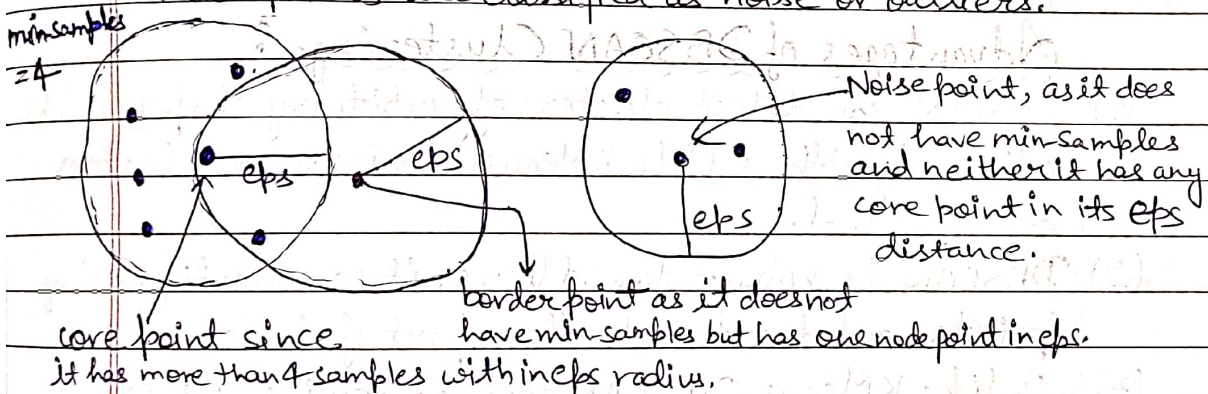 as noise or outliers.
min-samples
=4
eps
eps
eps
Noise point, as it does
not have min-samples
and neither it has any
core point in its eps
distance.
border point as it does not
have min-samples but has one node point in eps.
core point since
it has more than 4 samples within eps radius.